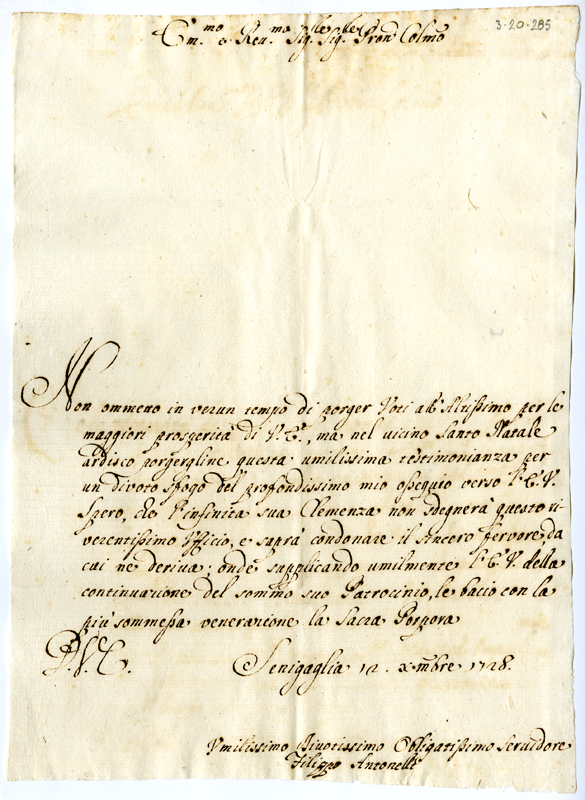 3-20-285
Em.mo e Reu.mo Sig.le Sig.le Pron Colmo
Non ommetto in verun tempo di porger Voti all'Altissimo per le
maggiori prosperità di V.E., ma nel vicino Santo Natale
ardisco porgergline questa umilissima testimonianza per
un divoto sfogo del profondissimo mio ossequio verso l'E.V.
Spero, che l'infinita sua Clemenza non sdegnerà questo ri-
verentissimo Ufficio, e saprà condonare il sincero fervore, da
cui ne deriva; onde supplicando umilmente l'E.V. della
continuazione del sommo suo Patrocinio, le bacio con la
più sommessa venerazione la Sacra Porpora
D.V.E. Senigaglia 12. Xmbre 1728.
Vmilissimo Diuotissimo Obligatissimo Seruidore
Filippo Antonelli